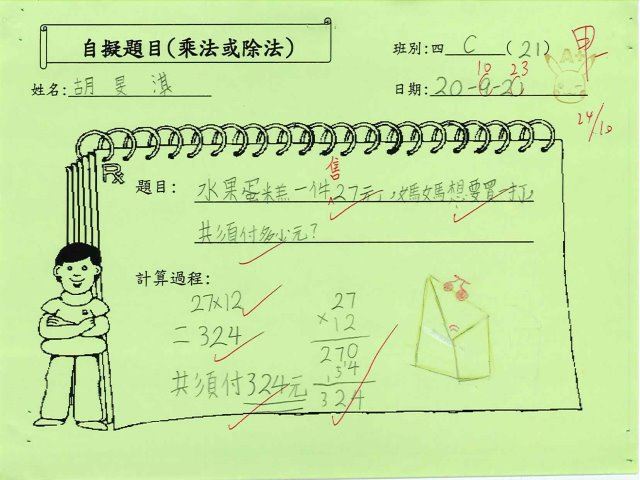 自擬題目(乘法或除法)
班別:四 C (21)
甲
A+
姓名:胡旻淇
10 23
日期:20-9-20
24/10
題目:水果蛋糕一件售27元,媽媽想要買一打,
共須付多少元?
計算過程:
27×12
=324
共須付324元
27
×12
270
54
324